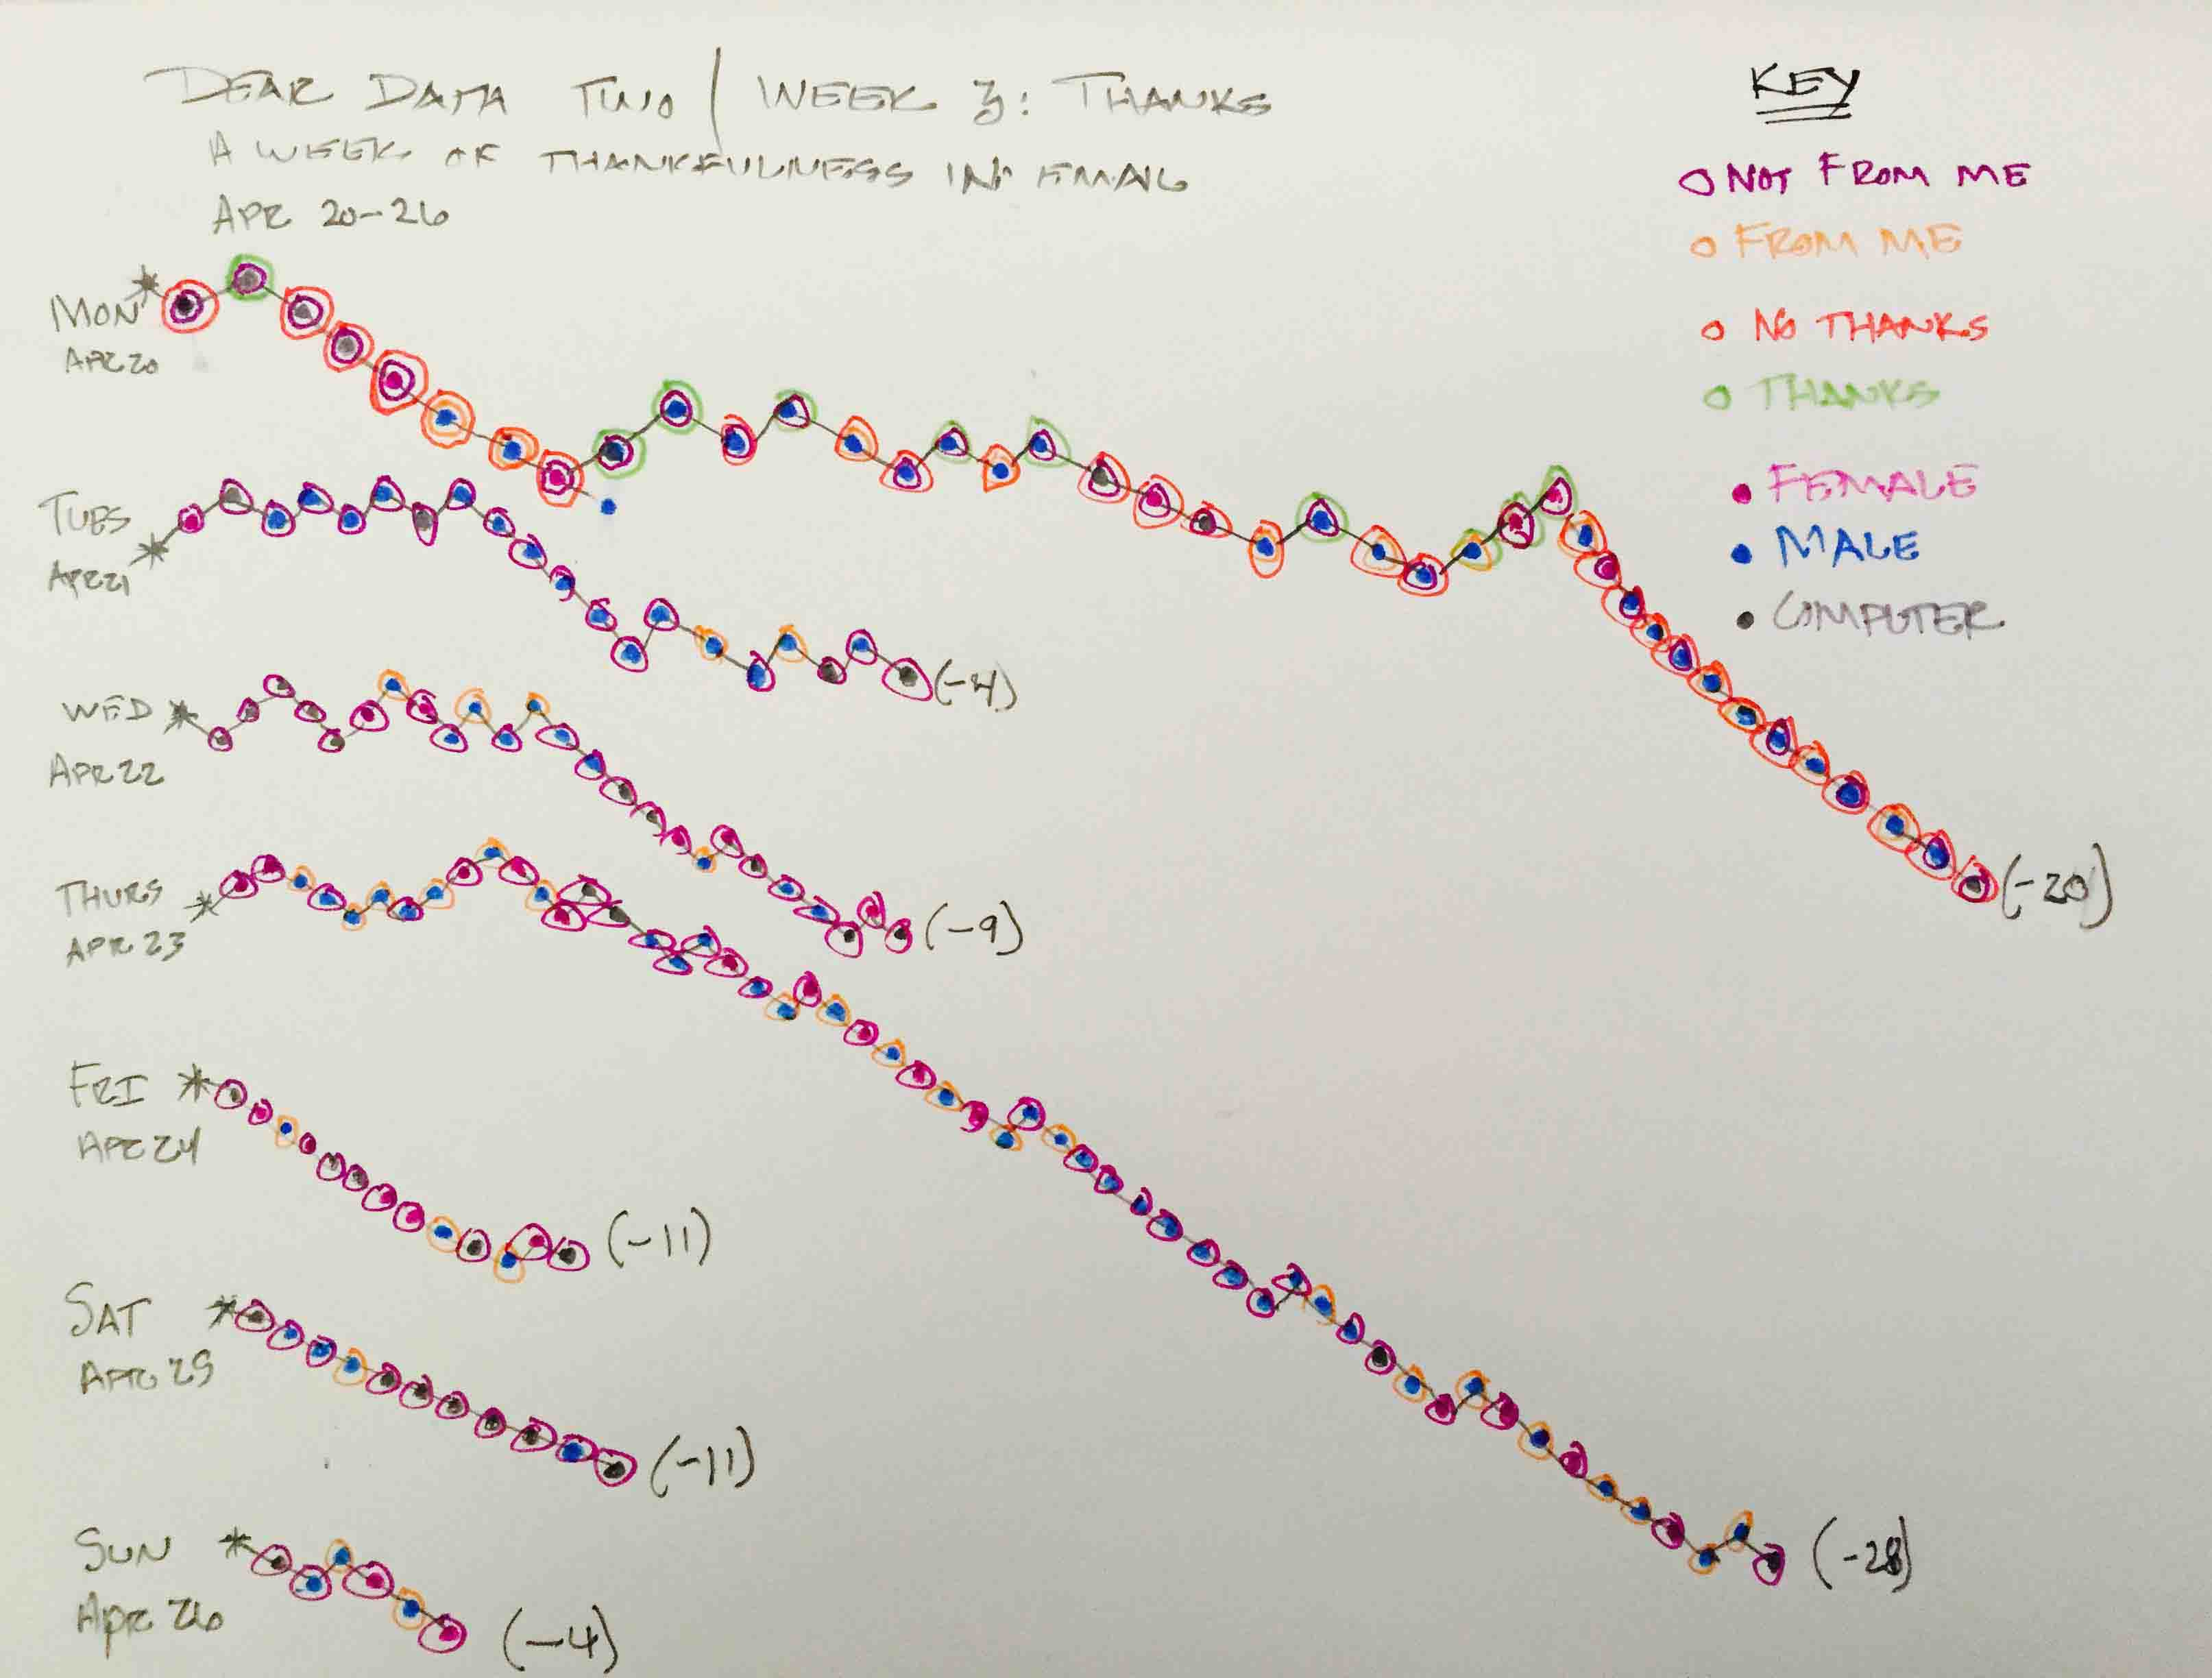 DEAR DATA TWO | WEEK 3: THANKS
A WEEK OF THANKFULNESS IN EMAIL
APR 20-26
KEY
NOT FROM ME
FROM ME
NO THANKS
THANKS
FEMALE
MALE
COMPUTER
MON
APR 20
(-20)
TUES
APR 21
(-4)
WED
APR 22
(-9)
THURS
APR 23
(-28)
FRI
APR 24
(-11)
SAT
APR 25
(-11)
SUN
Apr 26
(-4)